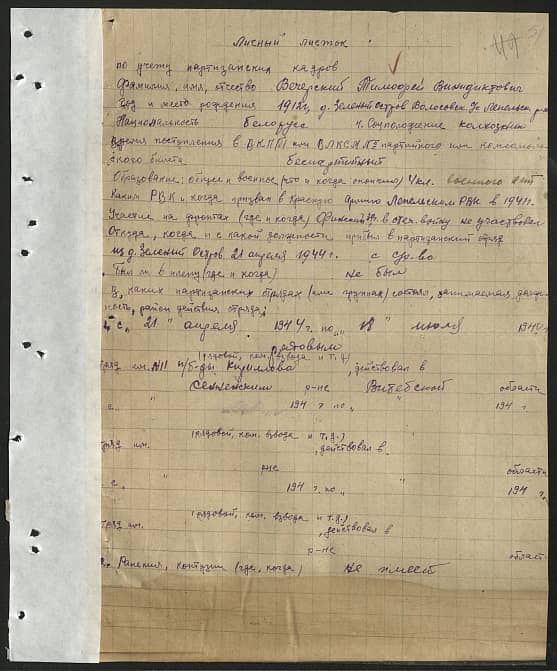 Личный листок
по учету партизанских кадров
Фамилия, имя, отчество Вечерский Тимофей Винидиктович
Год и место рождения 1912 г, д. Зеленый остров
Национальность белорусс 4. Соцположение колхозник
Время поступления в ВКП(б) или ВЛКСМ, № партийного или комсомоль-
ского билета беспартийный
Образование: общее и военное (что и когда окончил) 4 кл. военного нет
Каким РВК и когда призван в Красную армию Лепельском РВК в 1941 г.
Участие на фронтах (где и когда) в отеч. войну не участвовал
Откуда, когда и с какой должности прибыл в партизанский отряд
из д. Зеленый Остров. 21 апреля 1944 г. с
Был ли в плену (где и когда) не был
В каких партизанских отрядах (или группах) состоял, занимаемая долж-
ность, район действия отряда:
с „21" апреля 1944 г. по „ " июля 194
рядовым
(рядовой, ком. взвода и т.д)
отряд им. №11 п/б-ды Кириллова, действовал в
Сенненским р-не Витебской области
с „ " 194 г по „ " 194 г.
(рядовой, ком. взвода и т.д.)
отряд им. , действовал в
р-не области
с „ " 194 г. по „ " 194 г.
(рядовой, ком. взвода и т.д.)
отряд им. , действовал в
р-не област
Ранения, контузии (где, когда) не имеет